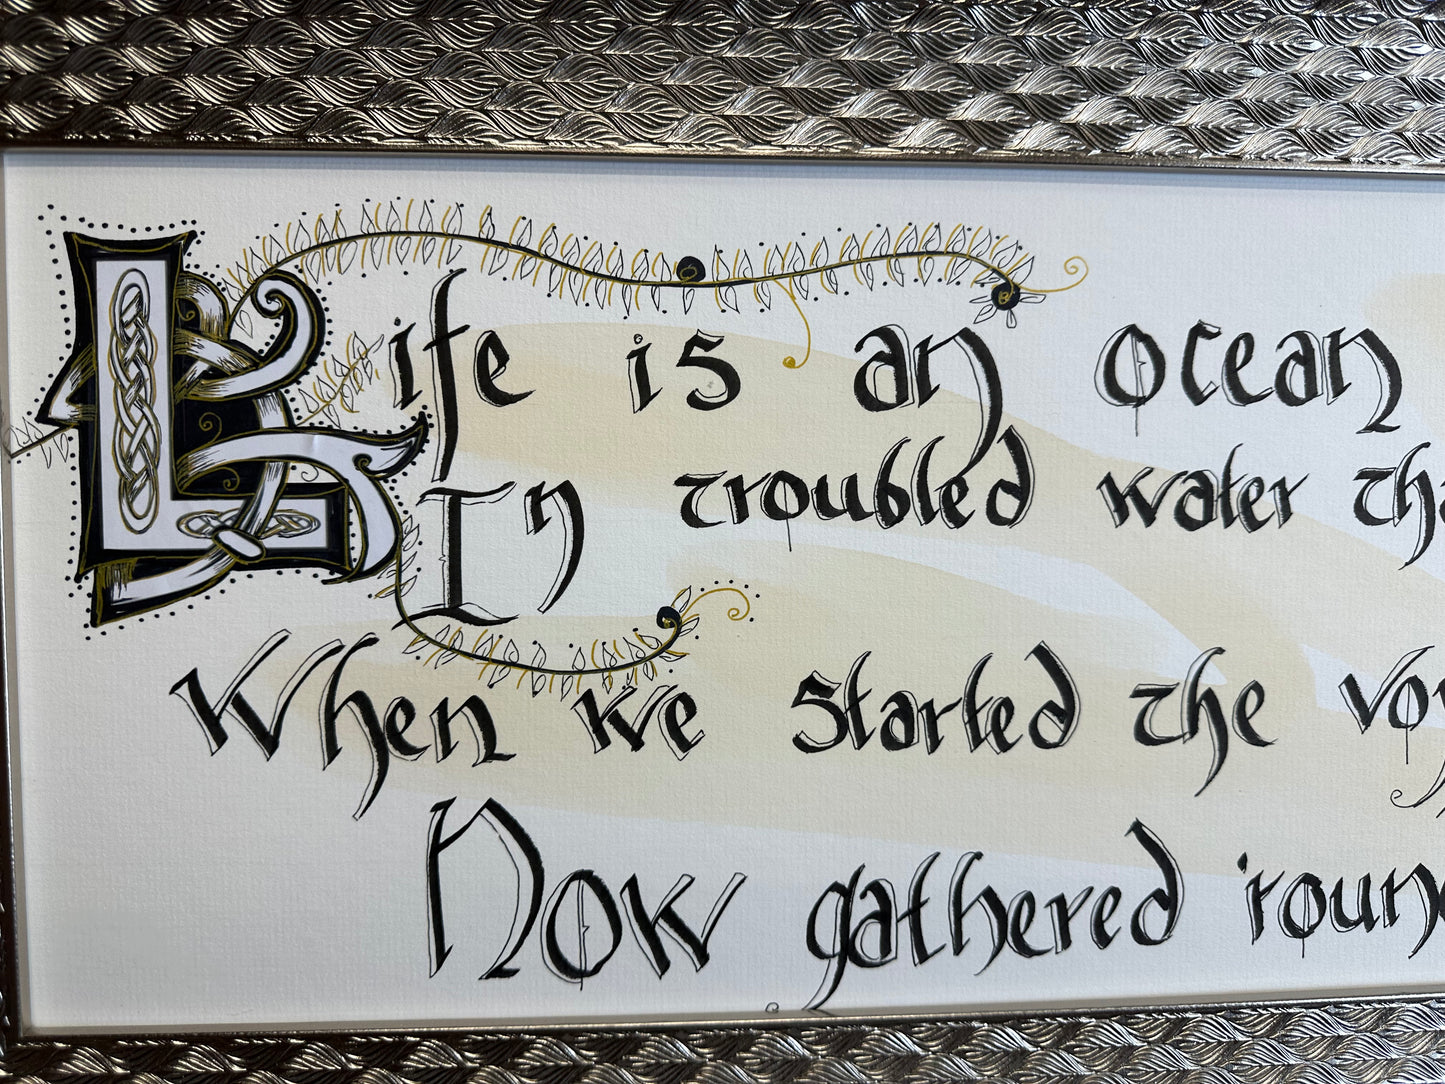 Life is an ocean
In troubled water tha
When we started the voy
Now gathered 'roun